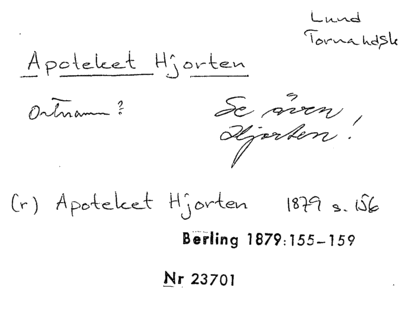 Lund
Tornahdsk
Apoteket Hjorten
Ortnamn?
Se även
Hjorten!
(r) Apoteket Hjorten 1879 s. 156
Berling 1879:155-159
Nr 23701